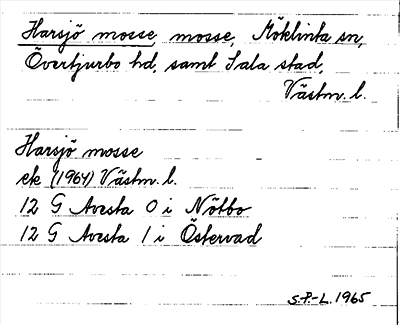 Harsjö mosse, mosse, Möklinta sn,
Övertjurbo hd, samt Sala stad,
Västm. l.
Harsjö mosse
ek (1964) Västm. l.
12 G Avesta 0 i Nötbo
12 G Avesta 1 i Östervad
S.P.-L. 1965